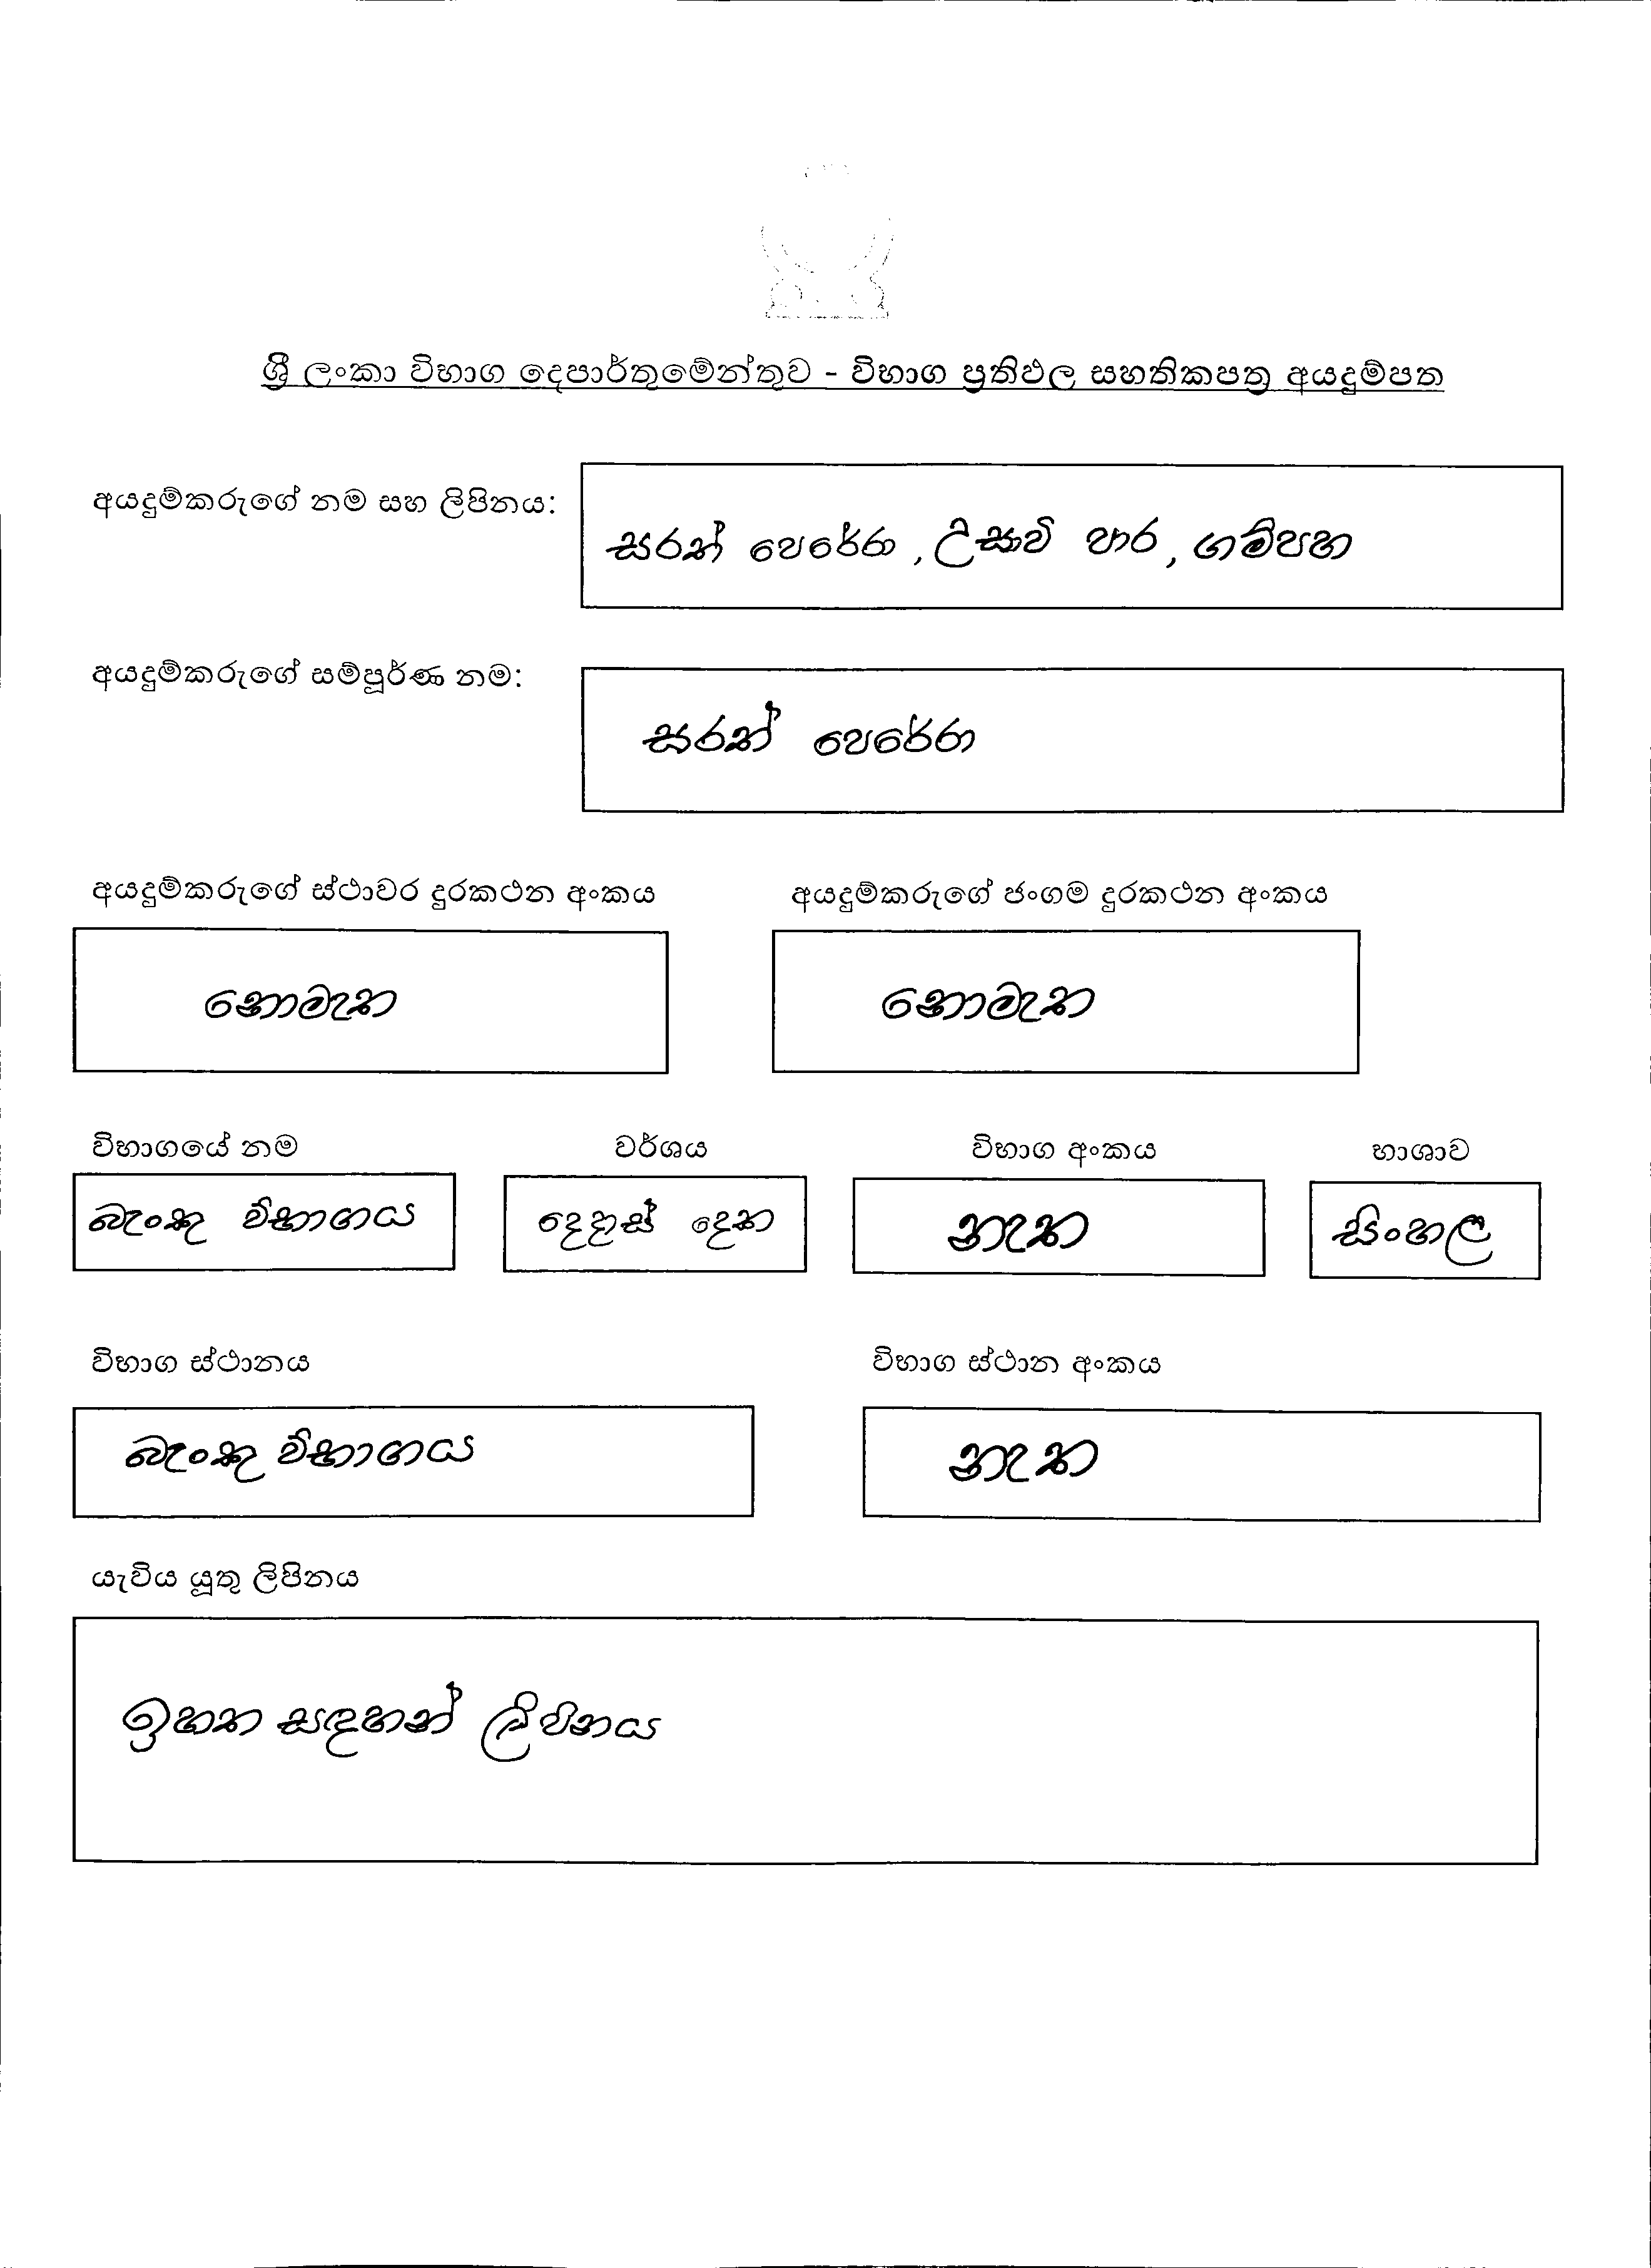 ශ්‍රී ලංකා විභාග දෙපාර්තුමේන්තුව - විභාග ප්‍රතිඵල සහතිකපත්‍ර අයදුම්පත
අයදුම්කරුගේ නම සහ ලිපිනය:
සරත් පෙරේරා, උසාවි පාර, ගම්පහ
අයදුම්කරුගේ සම්පූර්ණ නම:
සරත් පෙරේරා
අයදුම්කරුගේ ස්ථාවර දුරකථන අංකය අයදුම්කරුගේ ජංගම දුරකථන අංකය
නොමැත නොමැත
විභාගයේ නම වර්ශය විභාග අංකය භාශාව
බැංකු විභාගය දෙදාස් දෙක නැත සිංහල
විභාග ස්ථානය විභාග ස්ථාන අංකය
බැංකු විභාගය නැත
යැවිය යූතු ලිපිනය
ඉහත සඳහන් ලිපිනය